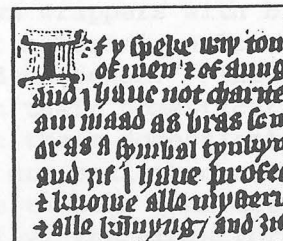 If y speke wiþ ton
of men ⁊ of aung
and j haue not charite
am maad as bras sow
or as a symbal tynkyn
and ȝif j haue profec
⁊ knowe alle mysteri
⁊ alle kunnyng/ and ȝif